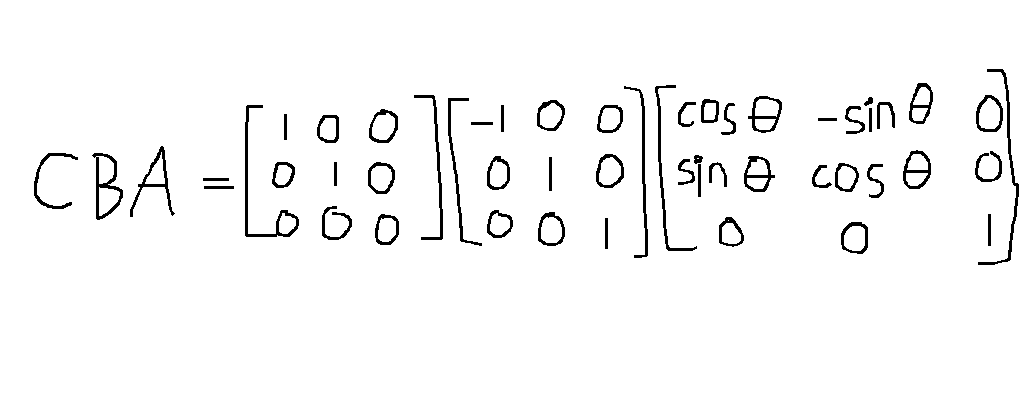 CBA = [1 0 0; 0 1 0; 0 0 0] [-1 0 0; 0 1 0; 0 0 1] [cos θ -sin θ 0; sin θ cos θ 0; 0 0 1]